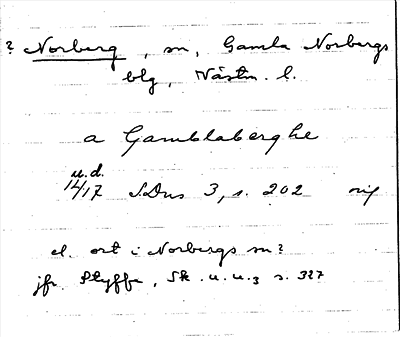 ? Norberg, sn, Gamla Norbergs
blg, Västm. l.
a Gamblaberghe
u.d.
14/17 SDns 3, s. 202 orig
el. ort i Norbergs sn?
jfr. Styffe, Sk. u. u.3 s. 327